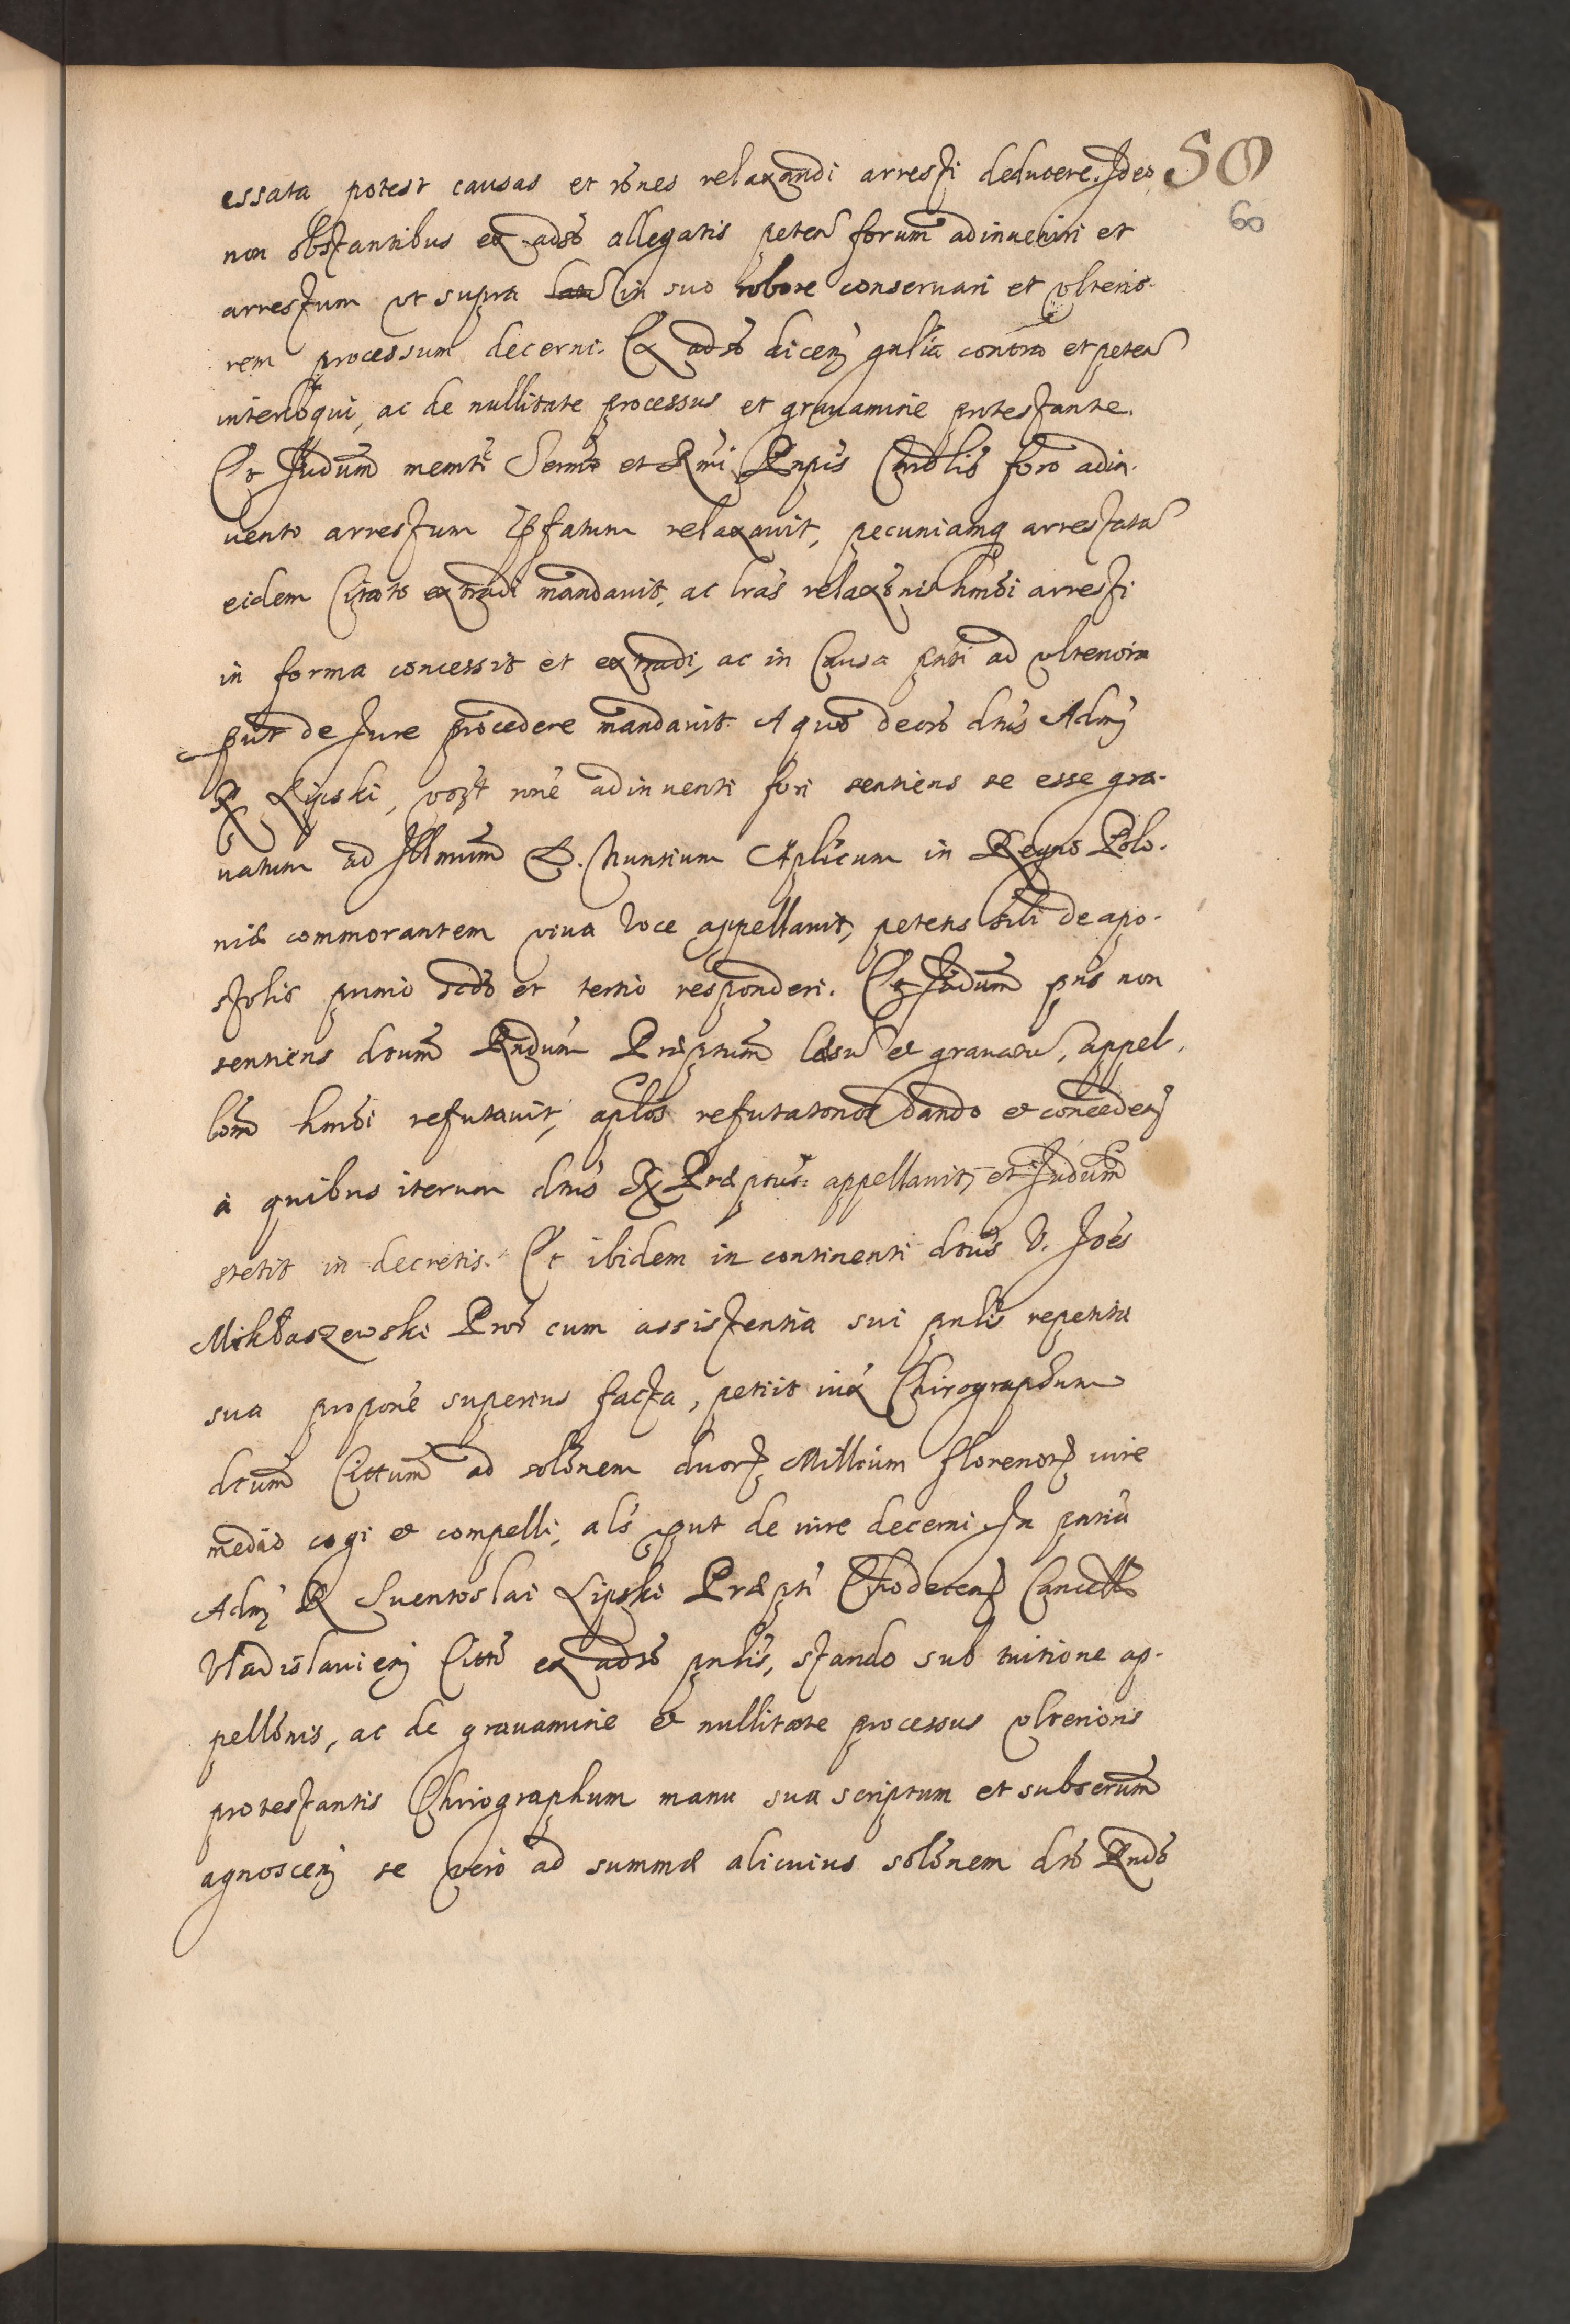 essata potest causas et rões relaxandi arresti deducere. Ideo 50
60
non obstantibus ex adso allegatis peten forum adinueniri et
arrestum vt supra in suo robore conseruari et vlterio-
rem processum decerni. Ex adso dicen gnlia contra et peten
interloqui, ac de nullitate processus et grauamine protestante.
Et Judum memti Sermi et Rmi Pnpis Carolis foro adin-
uento arrestum pfatum relaxauit, pecuniamq arrestata
eidem Citato extradi mandauit, ac lras relaxonis hmoi arresti
in forma concessit et extradi, ac in Causa pnti ad vlteriora
put de Jure procedere mandauit. A quo decro dnus Adm
R Lipski, rone adinuenti fori sentiens se esse gra-
uatum ad Illmum D. Nuntium Aplicum in Regno Polo-
niæ commorantem viua voce appellauit, petens sibi de apo-
stolis primo scdo et tertio responderi. Et Judum pns non
sentiens dnum Rndum Præptum læsu et grauatu, appel-
lom hmoi refutauit, aplos refutatorios dando et conceden
à quibus iterum dnus R Præptus appellauit, et Judum
stetit in decretis. Et ibidem in continenti dnus D. Joes
Miklaszewski Pror cum assistentia sui pnlis repetita
sua propone superius facta, petiit iux Chirographum
dctum Cittum ad solonem duor Millium florenor iure
medio cogi et compelli, als put de iure decerni. In pntia
Adm R Suentoslai Lipski Præpti Chodecen Cancell
Vladislauien Citto ex adso pnlis, stando sub tuitione ap-
pellonis, ac de grauamine et nullitate processus vlterioris
protestantis Chirographum manu sua scriptum et subscrum
agnoscen se vero ad summæ alicuius solonem dno Rndo